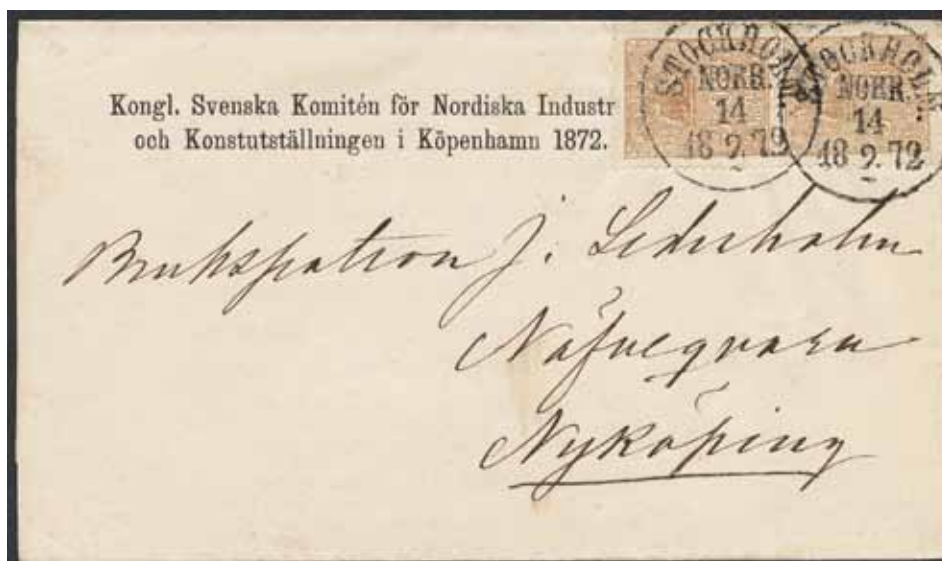 Kongl. Svenska Komitén för Nordiska Industr
och Konstutställningen i Köpenhamn 1872.
STOCKHOLM
NORR.
14
18 2. 72
STOCKHOLM
NORR.
14
18 2. 72
Brukspatron J. Lederholm
Näfveqvarn
Nyköping